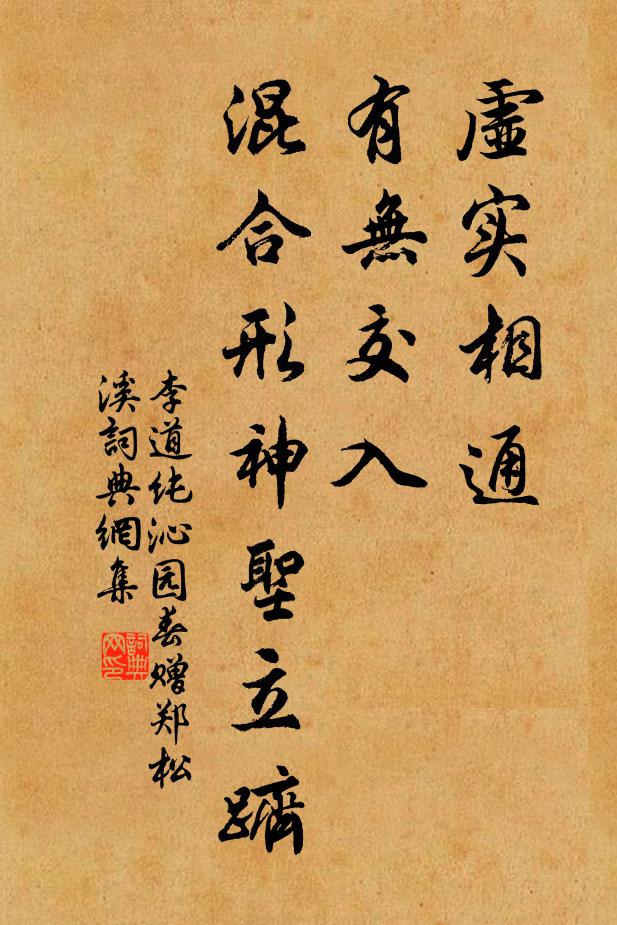 虚实相通
有無交入
混合形神聖立躋
李道纯沁园春赠郑松
溪詞典網集
詞典网印